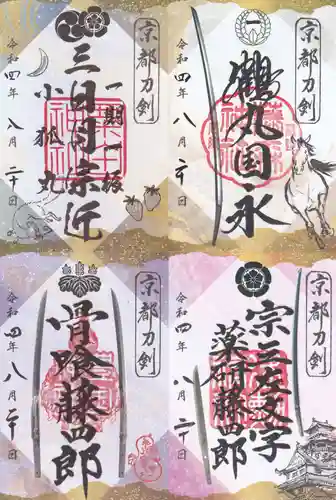 京都刀剣
三日月宗近
小狐丸
一期一振
令和四年八月二十日
京都刀剣
一
鶴丸国永
藤森神社
令和四年八月二十日
京都刀剣
骨喰藤四郎
令和四年八月二十日
京都刀剣
宗三左文字
薬研藤四郎
令和四年八月二十日